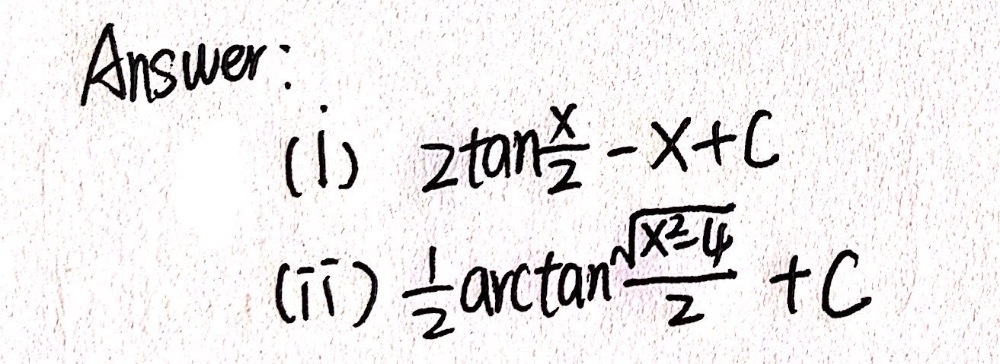 Answer:
(i) 2tan x/2 - x + C
(ii) 1/2 arctan √(x²-4)/2 + C